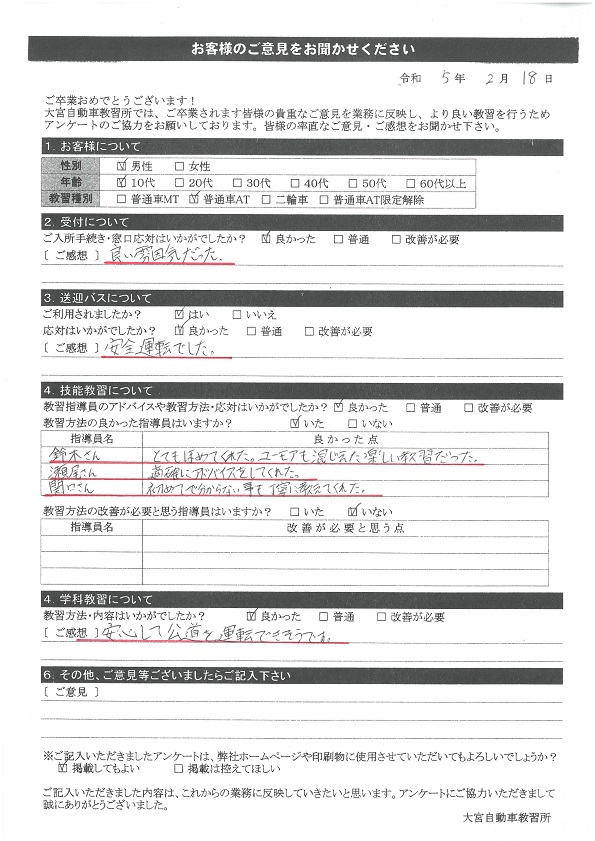 お客様のご意見をお聞かせください
令和 5 年 2 月 18 日
ご卒業おめでとうございます！
大宮自動車教習所では、ご卒業されます皆様の貴重なご意見を業務に反映し、より良い教習を行うため
アンケートのご協力をお願いしております。皆様の率直なご意見・ご感想をお聞かせ下さい。
1. お客様について
性別 ☑ 男性 □ 女性
年齢 ☑ 10代 □ 20代 □ 30代 □ 40代 □ 50代 □ 60代以上
教習種別 □ 普通車MT ☑ 普通車AT □ 二輪車 □ 普通車AT限定解除
2. 受付について
ご入所手続き・窓口応対はいかがでしたか？ ☑ 良かった □ 普通 □ 改善が必要
［ ご感想 ］良い雰囲気だった。
3. 送迎バスについて
ご利用されましたか？ ☑ はい □ いいえ
応対はいかがでしたか？ ☑ 良かった □ 普通 □ 改善が必要
［ ご感想 ］安全運転でした。
4. 技能教習について
教習指導員のアドバイスや教習方法・応対はいかがでしたか？ ☑ 良かった □ 普通 □ 改善が必要
教習方法の良かった指導員はいますか？ ☑ いた □ いない
指導員名 良かった点
鈴木さん とてもほめてくれた。ユーモアも混じえた楽しい教習だった。
瀬尾さん 適確にアドバイスをしてくれた。
関口さん 初めてで分からない事も丁寧に教えてくれた。
教習方法の改善が必要と思う指導員はいますか？ □ いた ☑ いない
指導員名 改善が必要と思う点
4. 学科教習について
教習方法・内容はいかがでしたか？ ☑ 良かった □ 普通 □ 改善が必要
［ ご感想 ］安心して公道を運転できそうです。
6. その他、ご意見等ございましたらご記入下さい
［ ご意見 ］
※ご記入いただきましたアンケートは、弊社ホームページや印刷物に使用させていただいてもよろしいでしょうか？
☑ 掲載してもよい □ 掲載は控えてほしい
ご記入いただきました内容は、これからの業務に反映していきたいと思います。アンケートにご協力いただきまして
誠にありがとうございました。
大宮自動車教習所